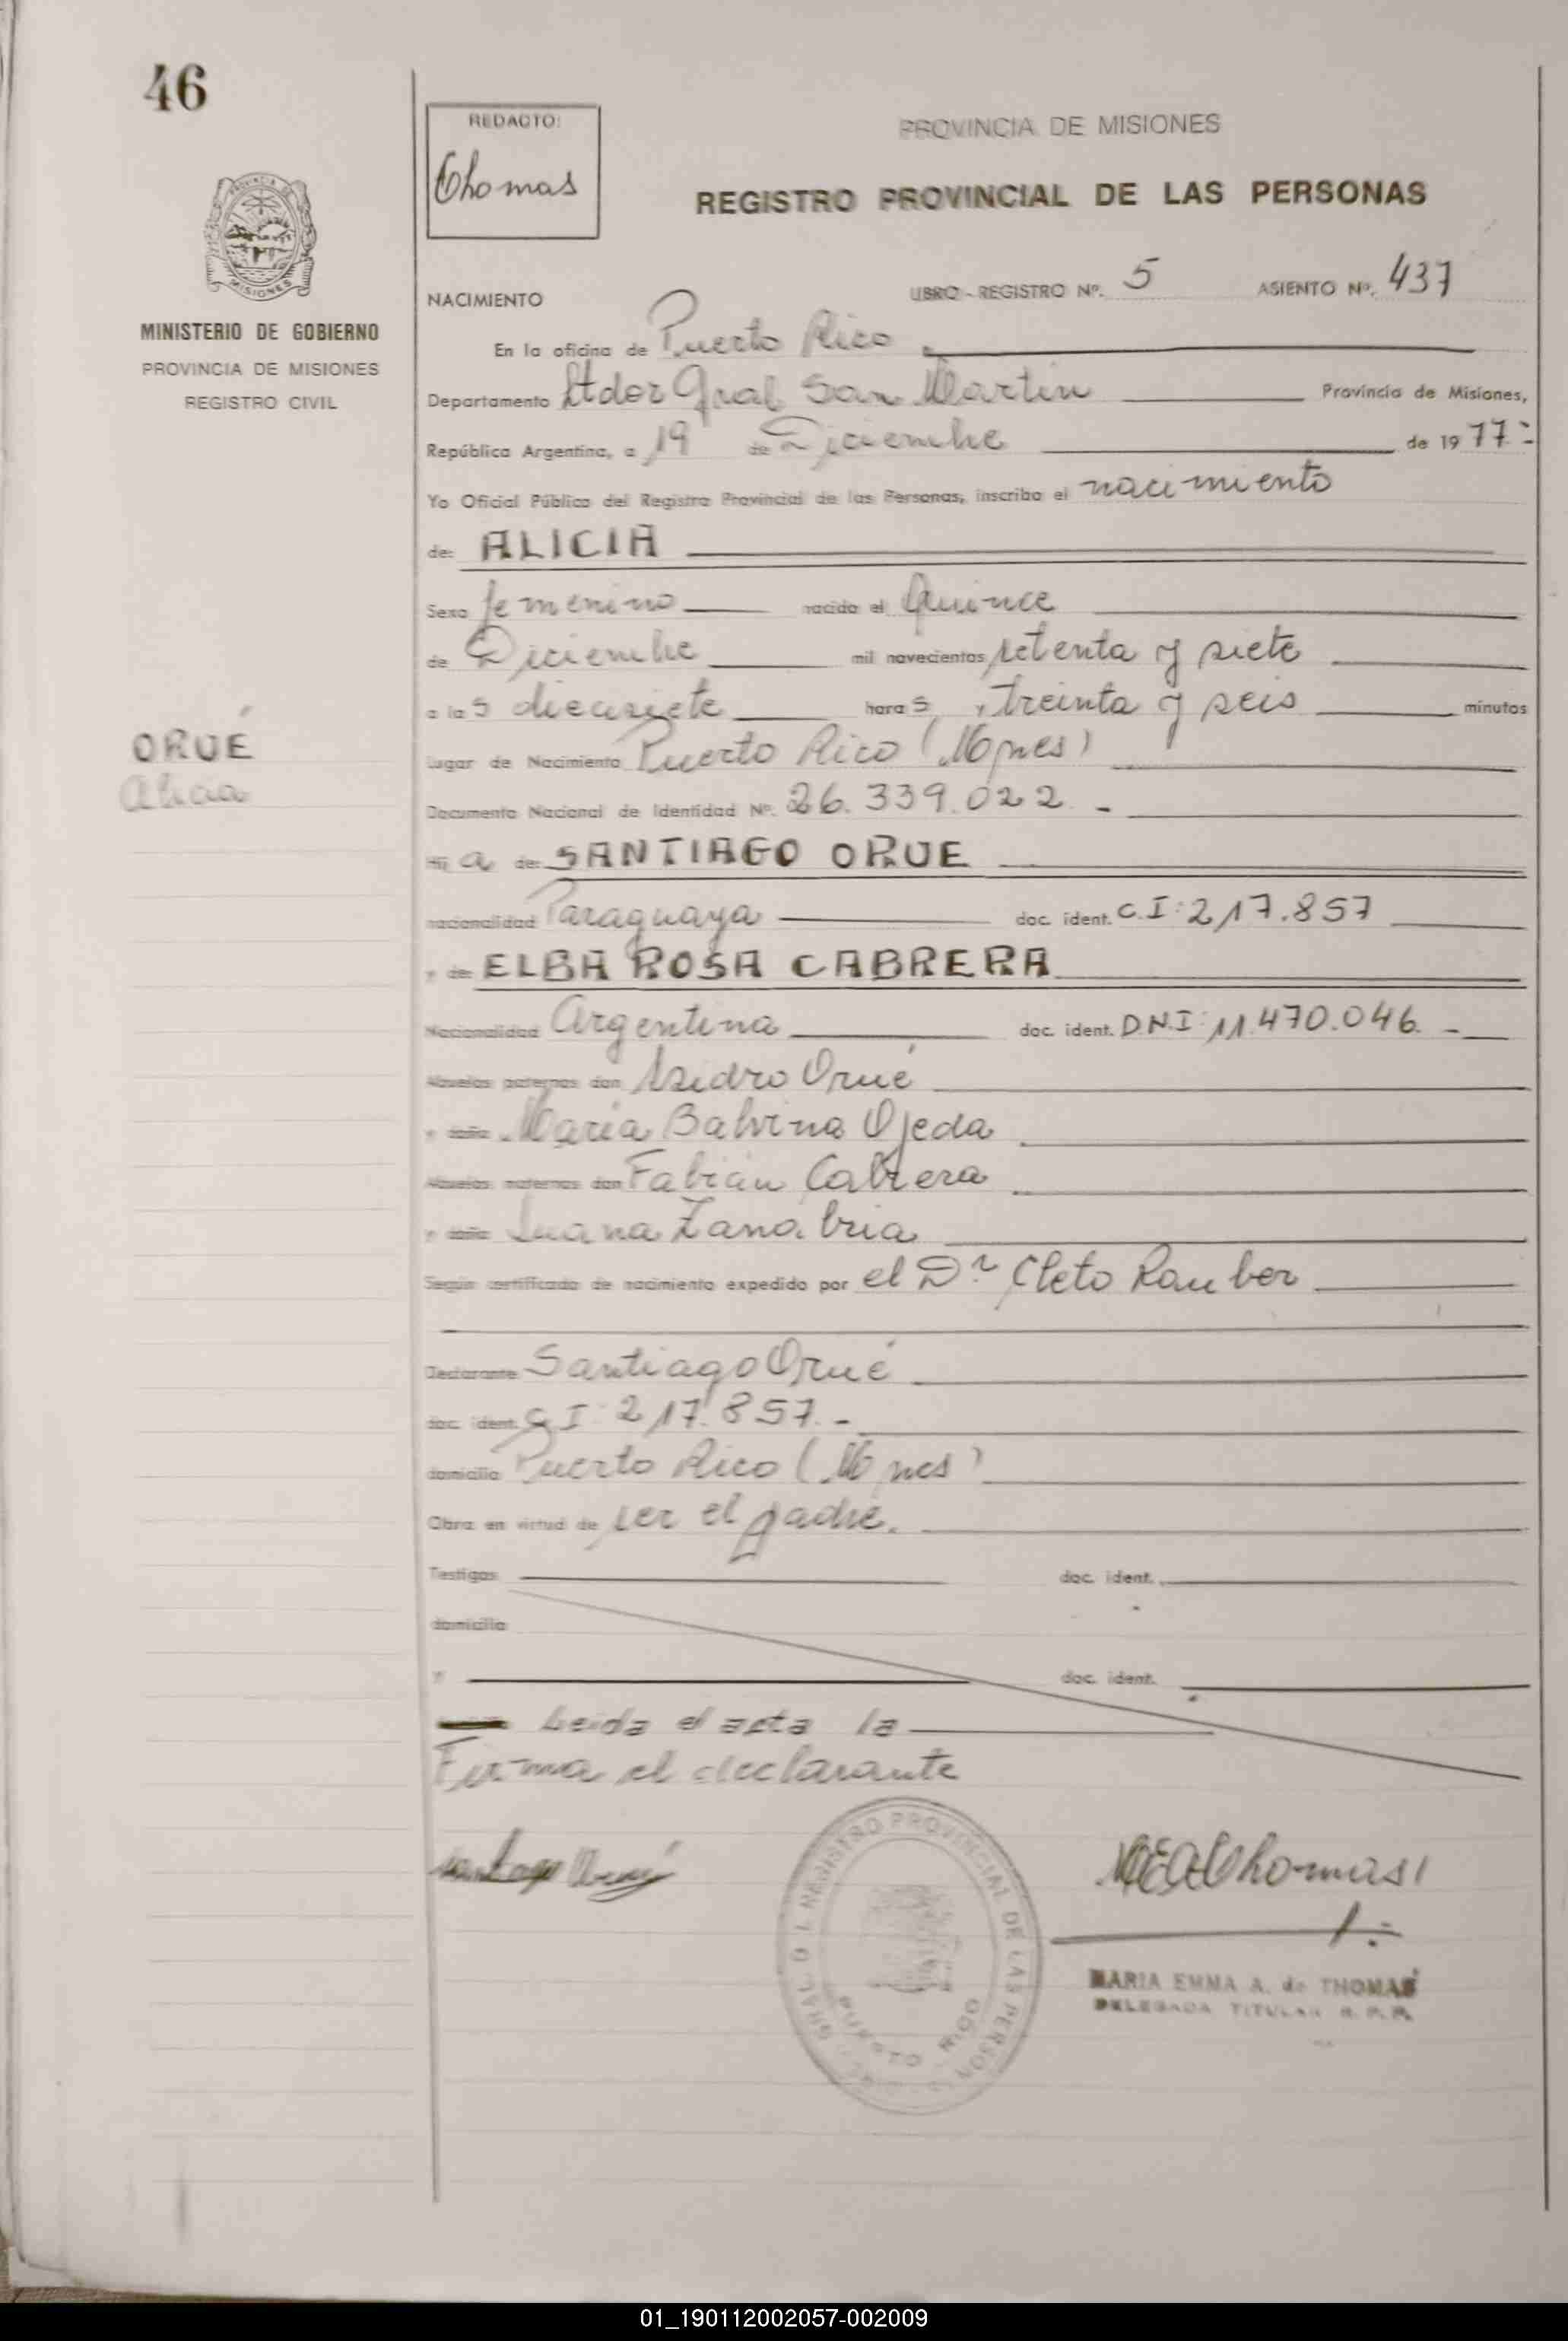 46
MINISTERIO DE GOBIERNO
PROVINCIA DE MISIONES
REGISTRO CIVIL
ORUÉ
Alicia
REDACTO:
Thomas
PROVINCIA DE MISIONES
REGISTRO PROVINCIAL DE LAS PERSONAS
NACIMIENTO LIBRO - REGISTRO Nº. 5 ASIENTO Nº. 437
En la oficina de Puerto Rico
Departamento Ltdor Gral San Martin Provincia de Misiones,
República Argentina, a 19 de Diciembre de 19 77
Yo Oficial Público del Registro Provincial de las Personas, inscribo el nacimiento
de: ALICIA
Sexo femenino nacido el Quince
de Diciembre mil novecientos setenta y siete
a las diecisiete horas, treinta y seis minutos
Lugar de Nacimiento Puerto Rico (Mones)
Documento Nacional de Identidad Nº. 26.339.022 -
Hija de: SANTIAGO ORUE
nacionalidad Paraguaya doc. ident. C.I: 217.857
y de ELBA ROSA CABRERA
Nacionalidad Argentina doc. ident. D.N.I: 11.470.046. -
Abuelos paternos don Isidro Orué
y doña María Balvina Ojeda
Abuelos maternos don Fabián Cabrera
y doña Juana Zanabria
Según certificado de nacimiento expedido por el Dr. Cleto Rauber
Declarante Santiago Orué
doc. ident. C.I: 217.857. -
domicilio Puerto Rico (Mones)
Obra en virtud de ser el padre.
Testigos doc. ident.
domicilio
y doc. ident.
Leida el acta la
Firma el declarante
Santiago Orué
MEAThomas
REGISTRO PROVINCIAL DE LAS PERSONAS
PUERTO RICO
MARIA EMMA A. de THOMAS
DELEGADA TITULAR R.P.P.
01_190112002057-002009